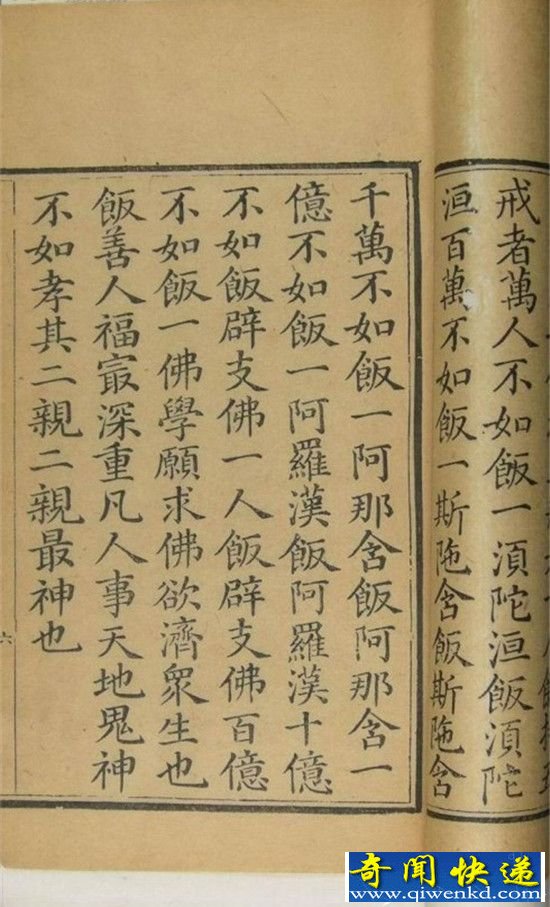 戒者萬人不如飯一湏陀洹飯湏陀
洹百萬不如飯一斯陁含飯斯陁含
千萬不如飯一阿那含飯阿那含一
億不如飯一阿羅漢飯阿羅漢十億
不如飯辟支佛一人飯辟支佛百億
不如飯一佛學願求佛欲濟衆生也
飯善人福㝡深重凡人事天地鬼神
不如孝其二親二親最神也
六
奇闻快递
www.qiwenkd.com